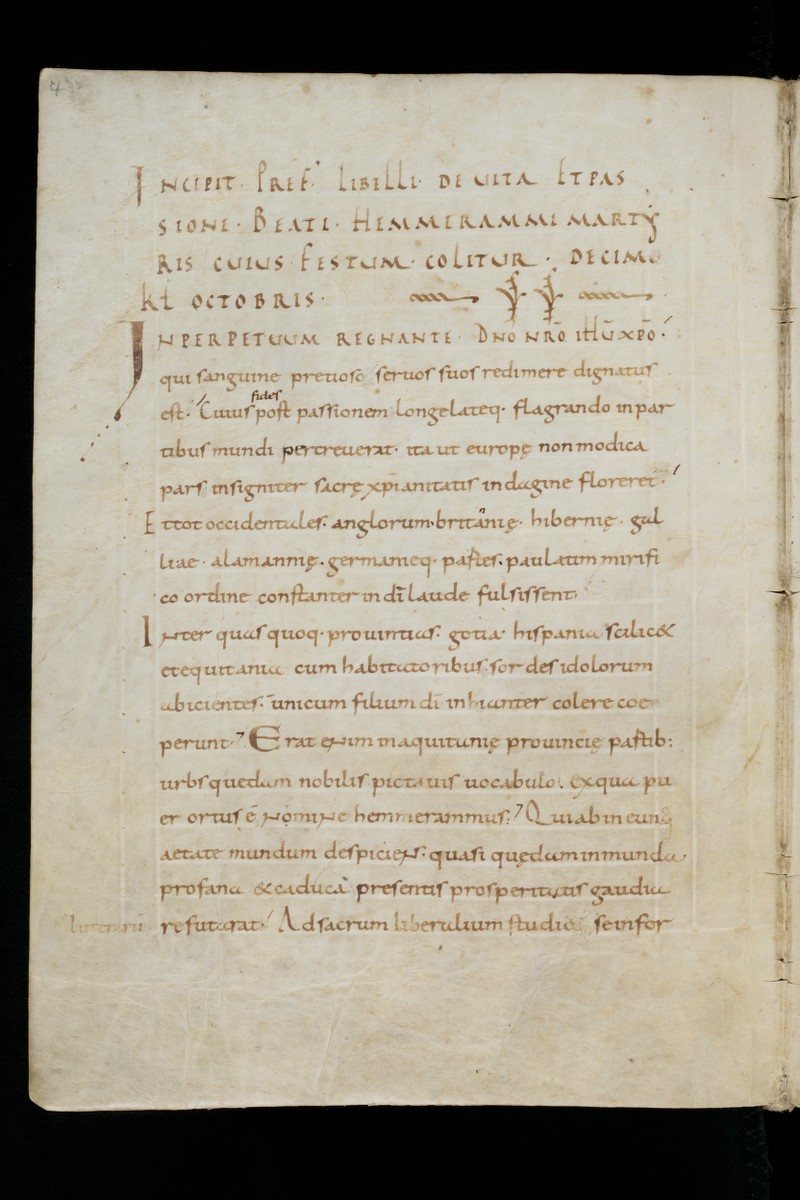 INCIPIT PREF LIBELLI· DE UITA ET PAS
SIONE· BEATI· HEMMERAMMI MARTY
RIS CUIUS FESTUM· COLITUR·, DECIMO
KL OCTOBRIS·
IN PERPETUUM REGNANTE· DNO NRO IHU XPO·
qui sanguine pretioso seruos suos redimere dignatus
est· Cuius fides post passionem longe lateq· flagrando in par
tibus mundi percreuerat· ita ut europę non modica
pars insigniter sacrę xpianitatis indagine floreret·
Et tot occidentales· anglorum· britannię· hibernię· gal
liae· alamannię· germanieq· partes· paulatim mirifi
co ordine constanter in di laude fulsissent·
Inter quas quoq· prouintias· gotia· hispania scilic&
et equitania cum habitatoribus sordes idolorum
abicientes· unicum filium di inhianter colere coe
perunt· Erat enim in aquitanię prouincię partib:
urbs quedam nobilis pictauis uocabulo· ex qua pu
er ortus ē nomine hemmerammus· Qui ab ineunte
aetate mundum despiciens· quasi quędam inmunda·
profana &caduca presentis prosperitatis gaudia
refutarat· Ad sacrum liberalium studio se infor